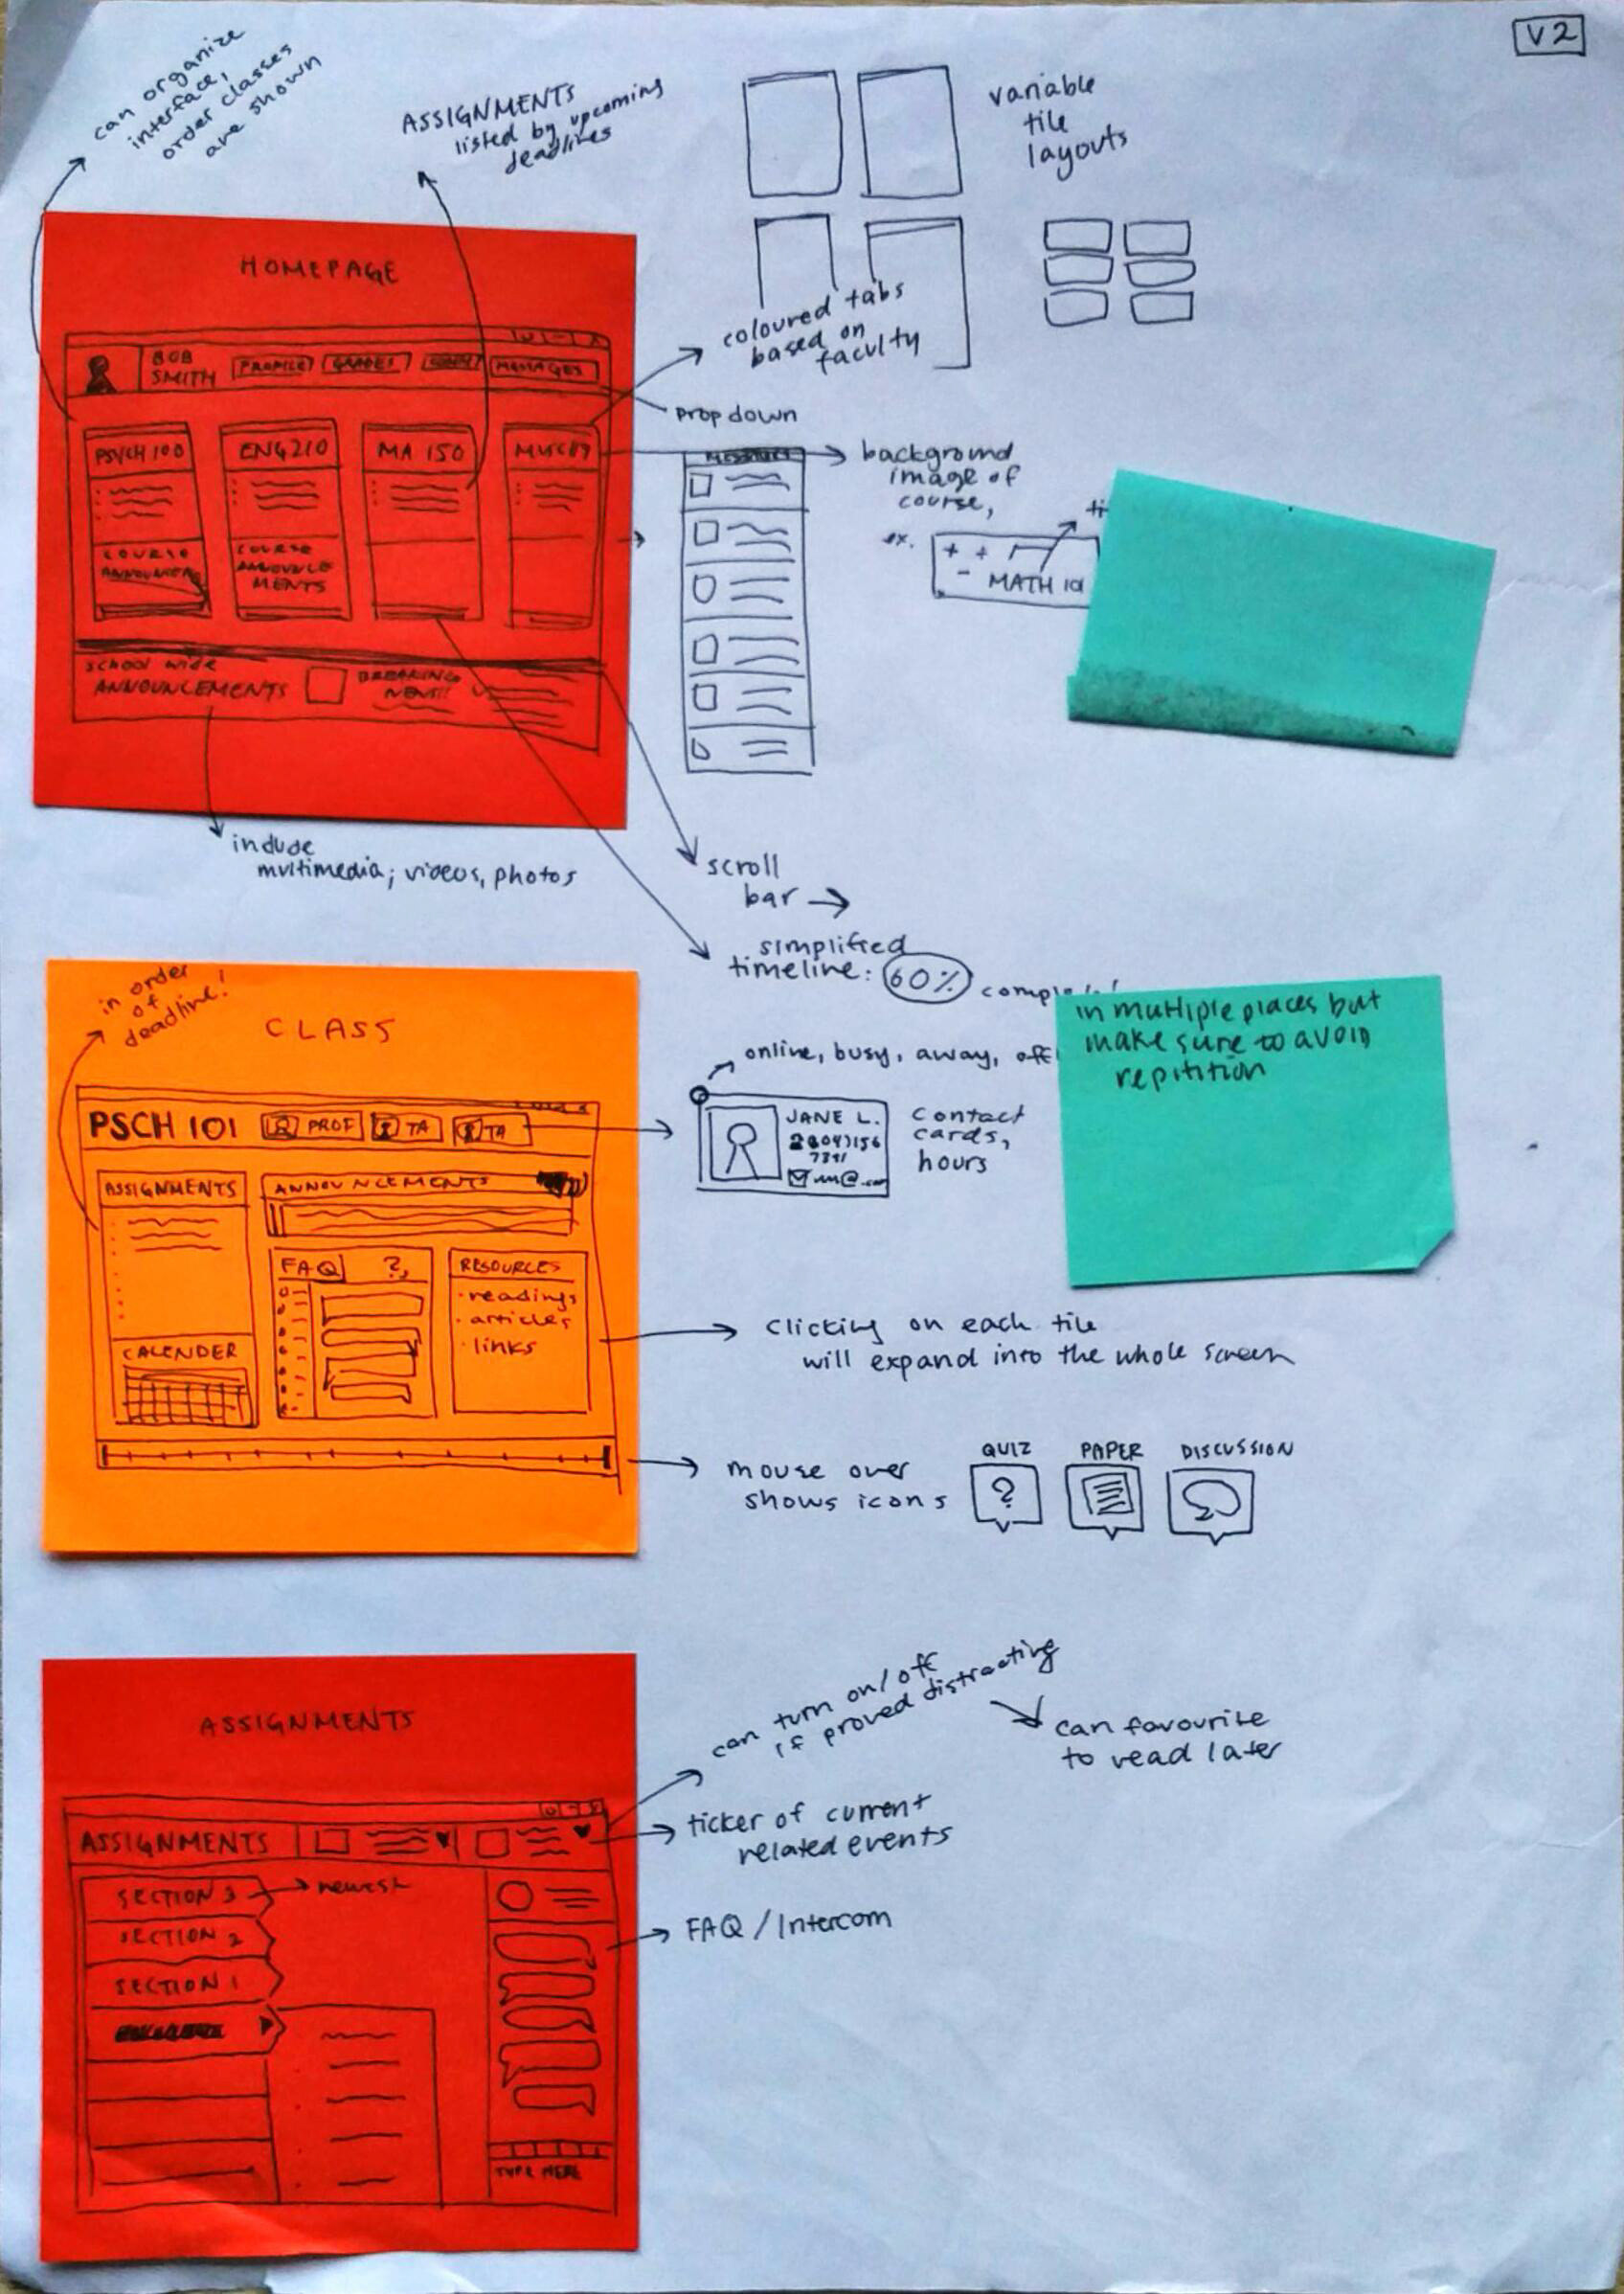 V2
can organize
interface,
order classes
are shown
ASSIGNMENTS
listed by upcoming
deadlines
variable
tile
layouts
HOMEPAGE
BOB
SMITH
PROFILE
GRADES
MESSAGES
PSYCH 100
ENG 210
MA 150
COURSE
COURSE
ANNOUNCE
MENTS
school wide
ANNOUNCEMENTS
BREAKING
NEWS!!
coloured tabs
based on
faculty
Drop down
MESSAGES
background
image of
course,
ex.
MATH 101
include
multimedia; videos, photos
scroll
bar
simplified
timeline: 60%
in multiple places but
make sure to avoid
repitition
in order
of
deadline!
CLASS
PSCH 101
PROF
TA
TA
ASSIGNMENTS
ANNOUNCEMENTS
FAQ
?
RESOURCES
· readings
· articles
· links
CALENDER
online, busy, away, off
JANE L.
contact
cards,
hours
clicking on each tile
will expand into the whole screen
mouse over
shows icons
QUIZ
?
PAPER
DISCUSSION
ASSIGNMENTS
ASSIGNMENTS
SECTION 3
newest
SECTION 2
SECTION 1
TYPE HERE
can turn on/off
if proved distracting
can favourite
to read later
ticker of current
related events
FAQ / Intercom